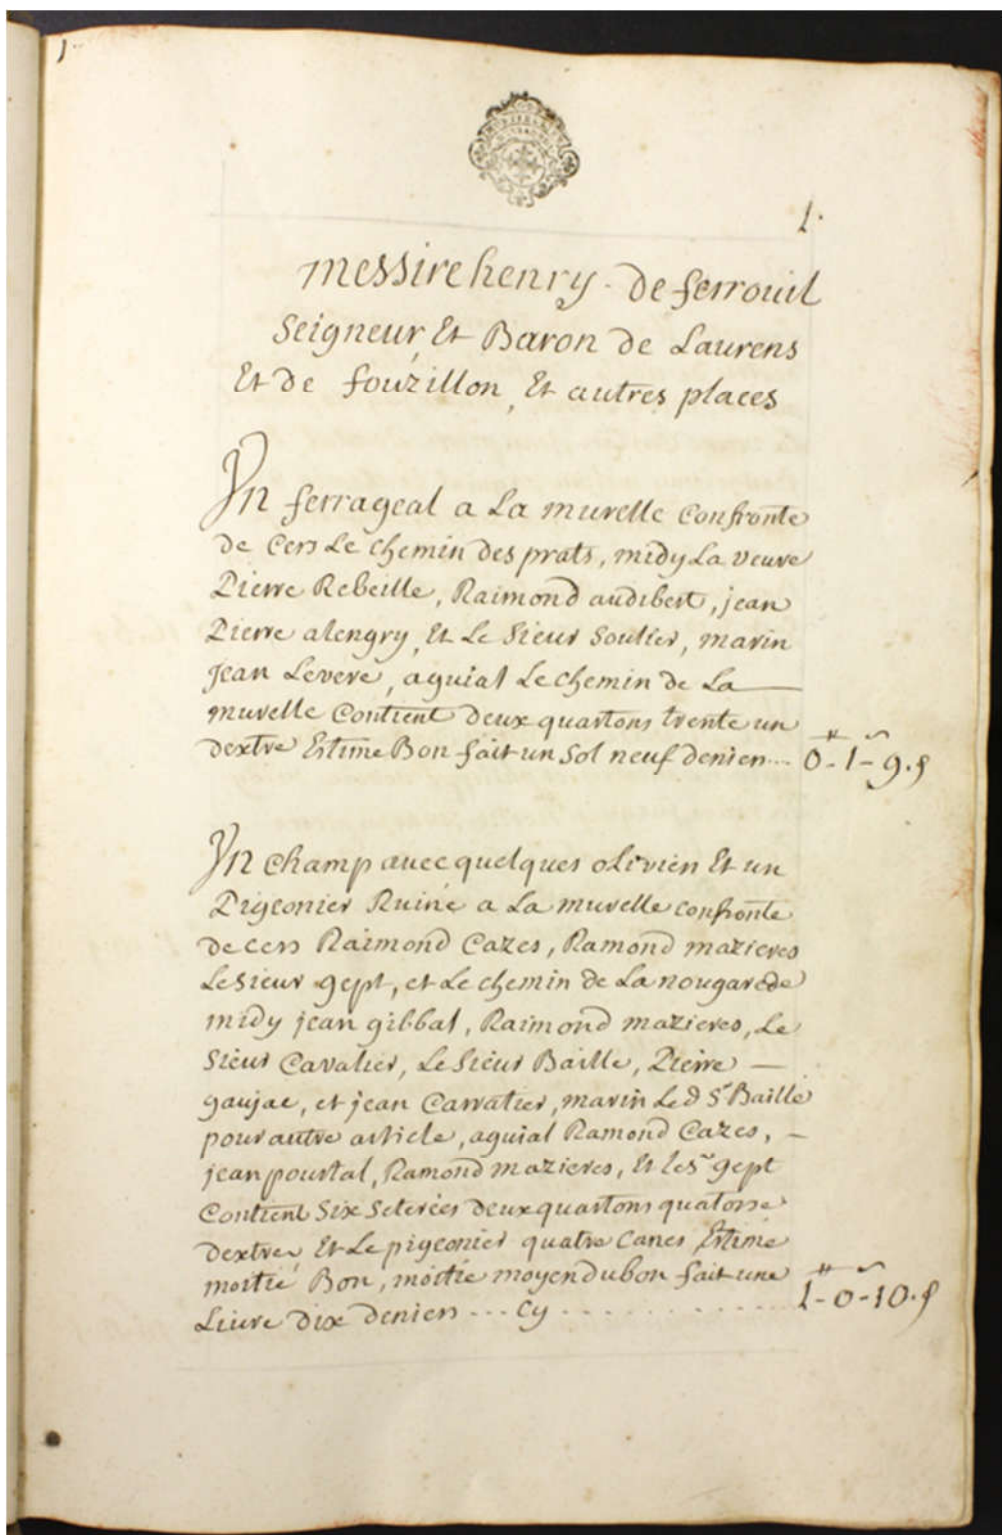 1.
1.
messire henry de ferrouil
Seigneur, Et Baron de Laurens
Et de fouzillon, Et autres places
Un ferrageal a La murelle Confronte
de Cers Le chemin des prats, midy La veuve
Pierre Rebeille, Raimond audibert, jean
Pierre alengry, Et Le Sieur Soulier, marin
Jean Levere, aguial Le chemin de La
murelle Contient deux quartons trente un
dextre Estime Bon fait un Sol neuf deniers... 0-1-9.₰
Un Champ avec quelques oliviers Et un
Pigeonier Ruiné a La murelle confronte
de cers Raimond Cazes, Ramond mazieres
Le Sieur gept, et Le chemin de La nougarede
midy jean gibbal, Raimond mazieres, Le
Sieur Cavalier, Le Sieur Baille, Pierre
gaujac, et jean Carratier, marin Led Sr Baille
pour autre article, aguial Ramond Cazes,
jean pourtal, Ramond mazieres, Et le Sr gept
Contient Six Seterées deux quartons quatorse
dextres Et Le pigeonier quatre Canes Estimé
moitié Bon, moitié moyen du bon fait une
Livre dix deniers --- Cy . . . . . . . . . . . 1-0-10.₰